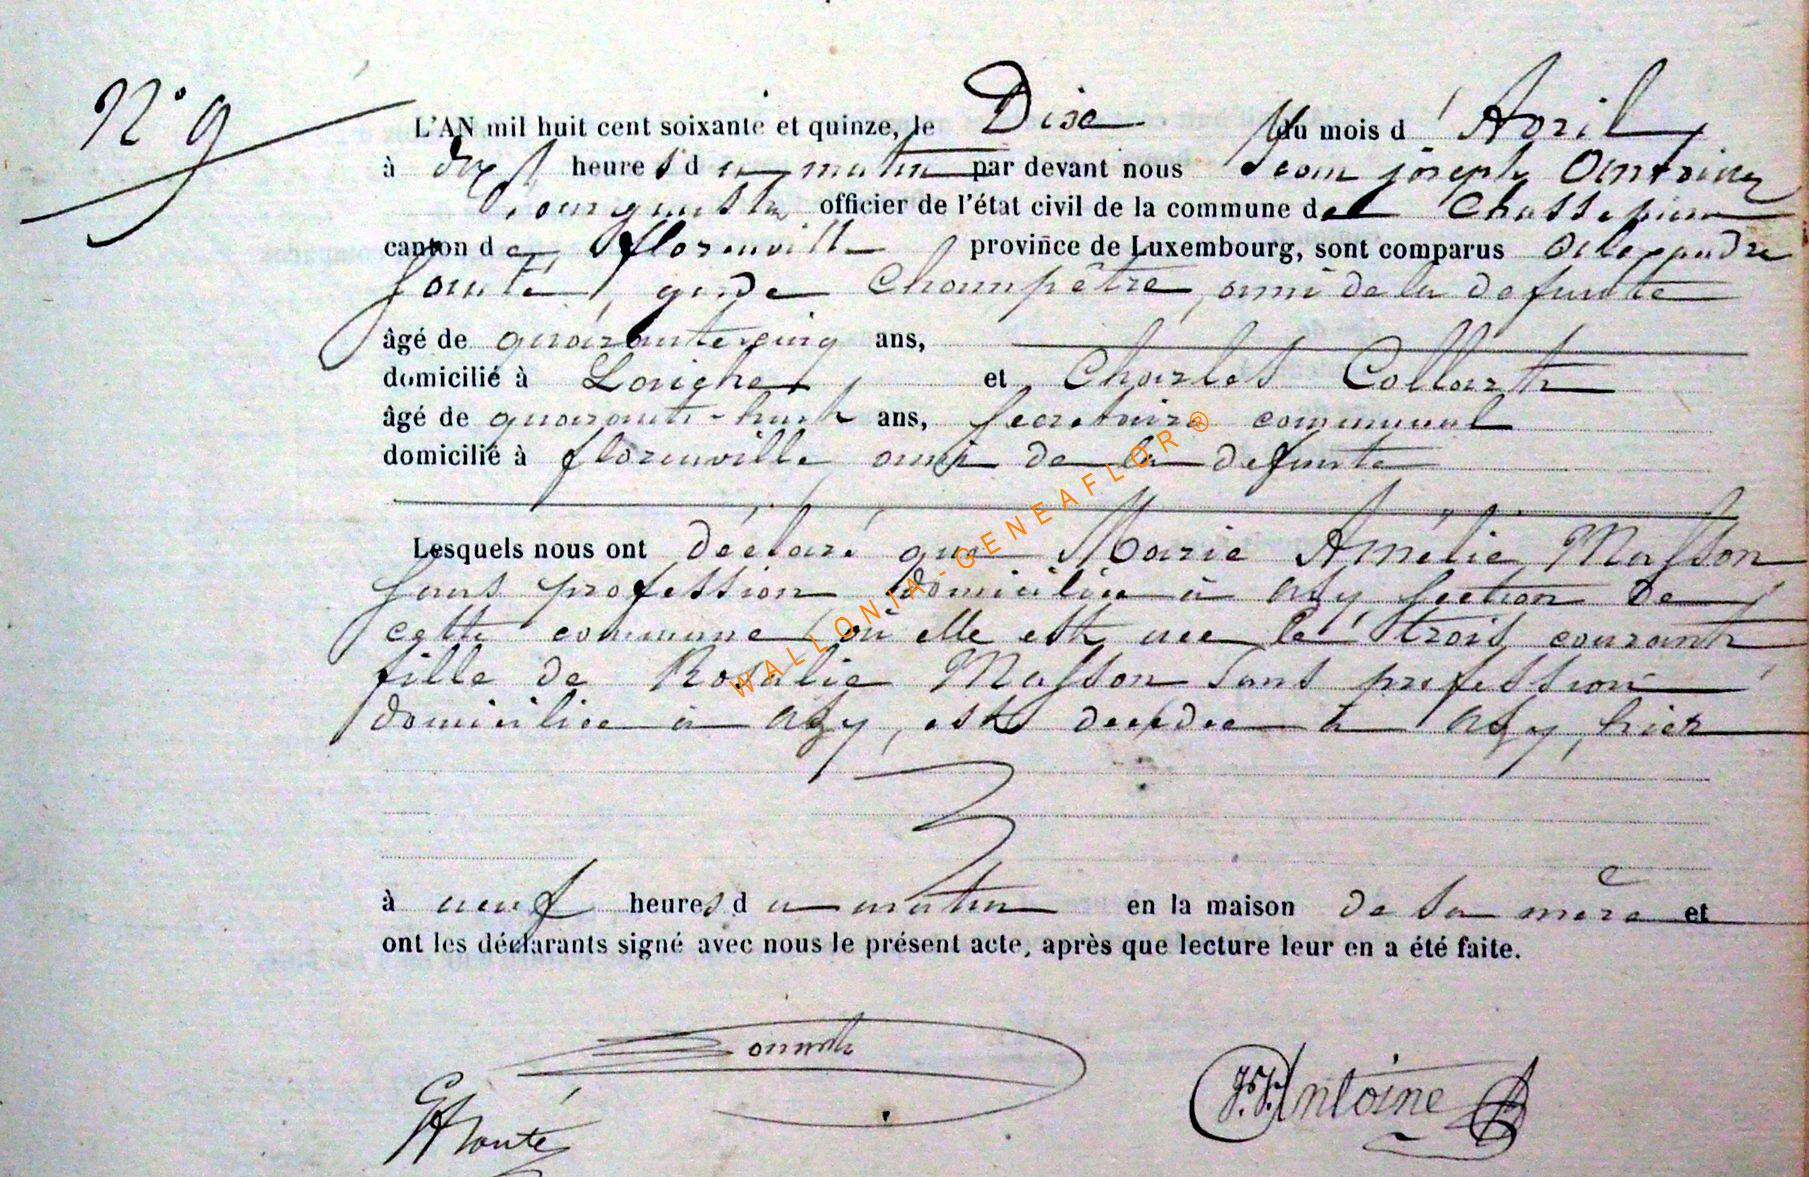 N° 9
L'AN mil huit cent soixante et quinze, le Dix du mois d'Avril
à dix heures du matin par devant nous Jean joseph Antoine
officier de l'état civil de la commune de Chassepierre
canton de florenville province de Luxembourg, sont comparus Alexandre
garde Champêtre, ami de la defunte
âgé de quarante cinq ans,
domicilié à Laiche, et Charles Collart
âgé de quarante-huit ans, secretaire communal
domicilié à florenville ami de la defunte
Lesquels nous ont déclaré que Marie Amélie Masson
sans profession domiciliée à Azy section de
cette commune où elle est nee le trois courant
fille de Rosalie Masson sans profession
domiciliée à Azy, est decedee à Azy, hier
à neuf heures du matin en la maison de sa mère et
ont les déclarants signé avec nous le présent acte, après que lecture leur en a été faite.
J.J. Antoine
WALLONIA-GENEAFLOR®